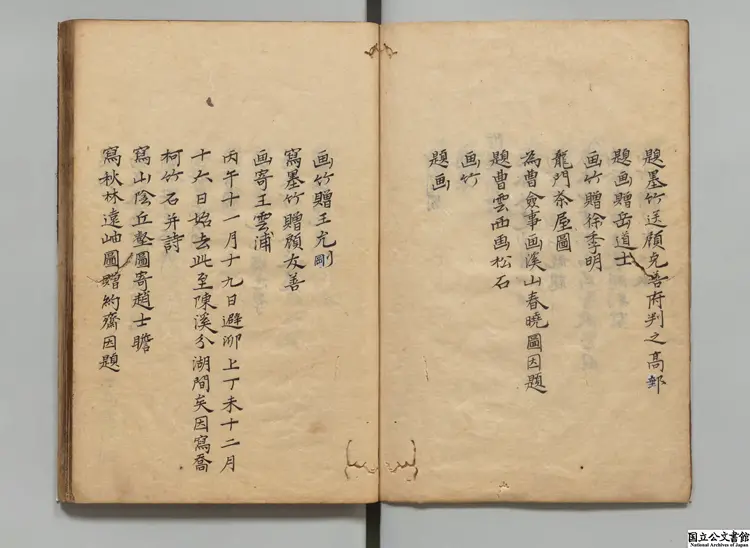 題墨竹送顧克善府判之高郵
題画贈岳道士
画竹贈徐季明
龍門茶屋圖
為曹僉事画溪山春曉圖因題
題曹雲西画松石
画竹
題画
画竹贈王允剛
寫墨竹贈顧友善
画寄王雲浦
丙午十一月十九日避泖上丁未十二月
十六日始去此至陳溪分湖間矣因寫喬
柯竹石并詩
寫山陰丘壑圖寄趙士瞻
寫秋林遠岫圖贈約齋因題
国立公文書館
National Archives of Japan